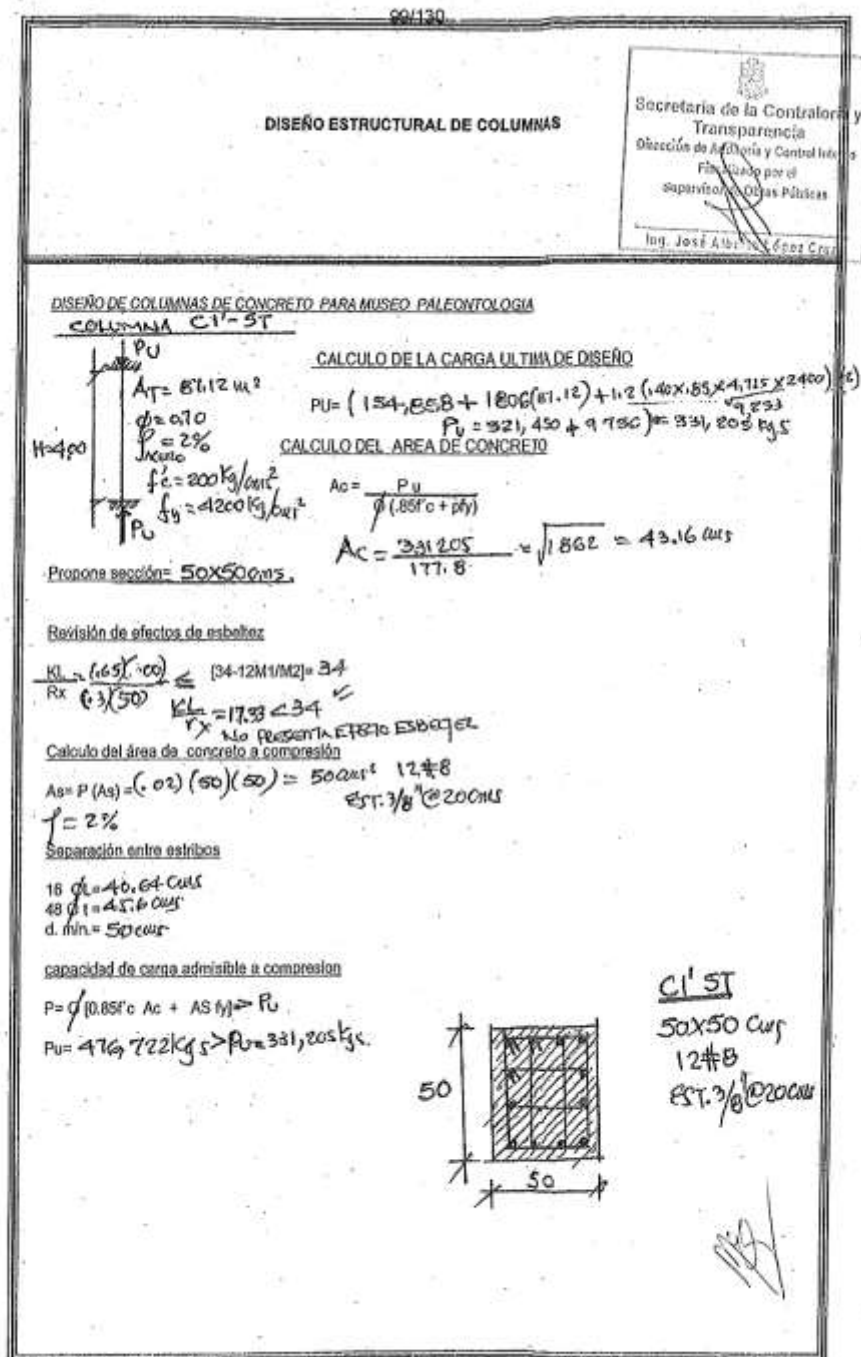 99/130
DISEÑO ESTRUCTURAL DE COLUMNAS
Secretaria de la Contraloria y
Transparencia
Dirección de Auditoria y Control Interno
Fiscalizado por el
Supervisor de Obras Públicas
Ing. José Alberto López Cruz
DISEÑO DE COLUMNAS DE CONCRETO PARA MUSEO PALEONTOLOGIA
COLUMNA C1'-ST
PU
AT= 87.12 m²
φ=0.70
ρ = 2%
H=4.00
f'c=200 Kg/cm²
fy=4200 Kg/cm²
PU
CALCULO DE LA CARGA ULTIMA DE DISEÑO
PU= (154,858 + 1806(87.12) + 1.2
Pu = 321,450 + 9756) = 331,205 Kgs
CALCULO DEL AREA DE CONCRETO
Ac = Pu
φ (.85f'c + pfy)
Ac = 331205 = √1862 = 43.16 cms
177.8
Propone sección= 50X50 cms.
Revisión de efectos de esbeltez
KL = (.65) ≤ [34-12M1/M2]= 34
Rx (.3)(50)
KL = 17.33 < 34 ✓
rx
NO PRESENTA EFECTO ESBELTEZ
Calculo del área de concreto a compresión
As= P (As) =(.02) (50)(50) = 50 cm² 12#8
EST. 3/8"@20cms
ρ = 2%
Separación entre estribos
16 φL=40.64 cms
48 φt=45.6 cms
d. min.= 50 cms
capacidad de carga admisible a compresion
P= φ [0.85f'c Ac + AS fy]> Pu
Pu= 476,722 Kgs > Pu=331,205 Kgs.
C1' ST
50X50 cms
12#8
EST. 3/8"@20cms
50
50